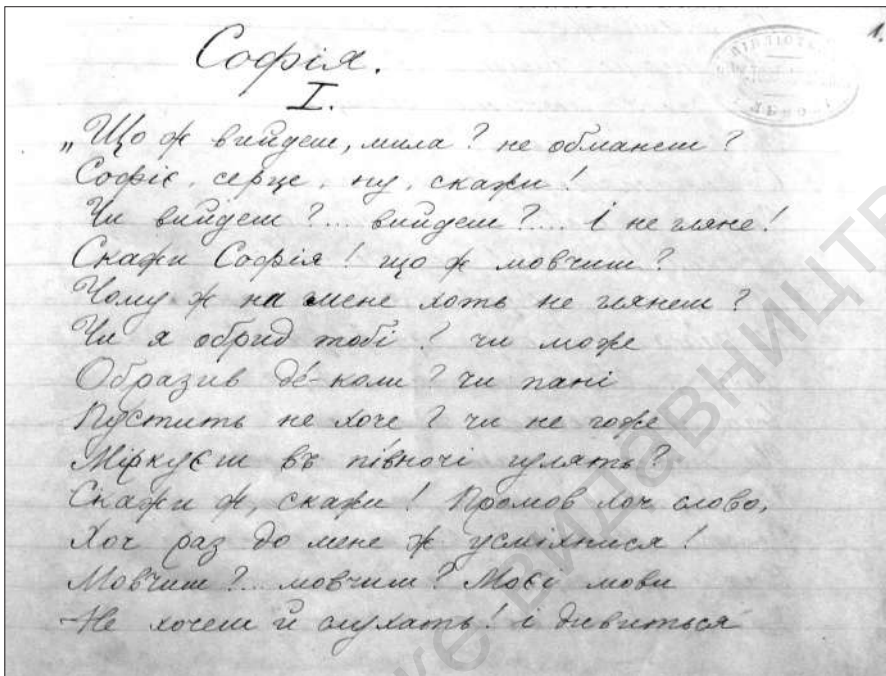 1.
Софія.
I.
„Що ж вийдеш, мила? не обманеш?
Софіє, серце, ну, скажи!
Чи вийдеш?... вийдеш?.... і не гляне!
Скажи Софія! що ж мовчиш?
Чому ж на мене хоть не глянеш?
Чи я обрид тобі? чи може
Образив де́-коли? чи пані
Пустить не хоче? чи не гоже
Міркуєш въ півночі гулять?
Скажи ж, скажи! Промов хоч слово,
Хоч раз до мене ж усміхнися!
Мовчиш?... мовчиш? Моєї мови
Не хочеш й слухать! і дивиться